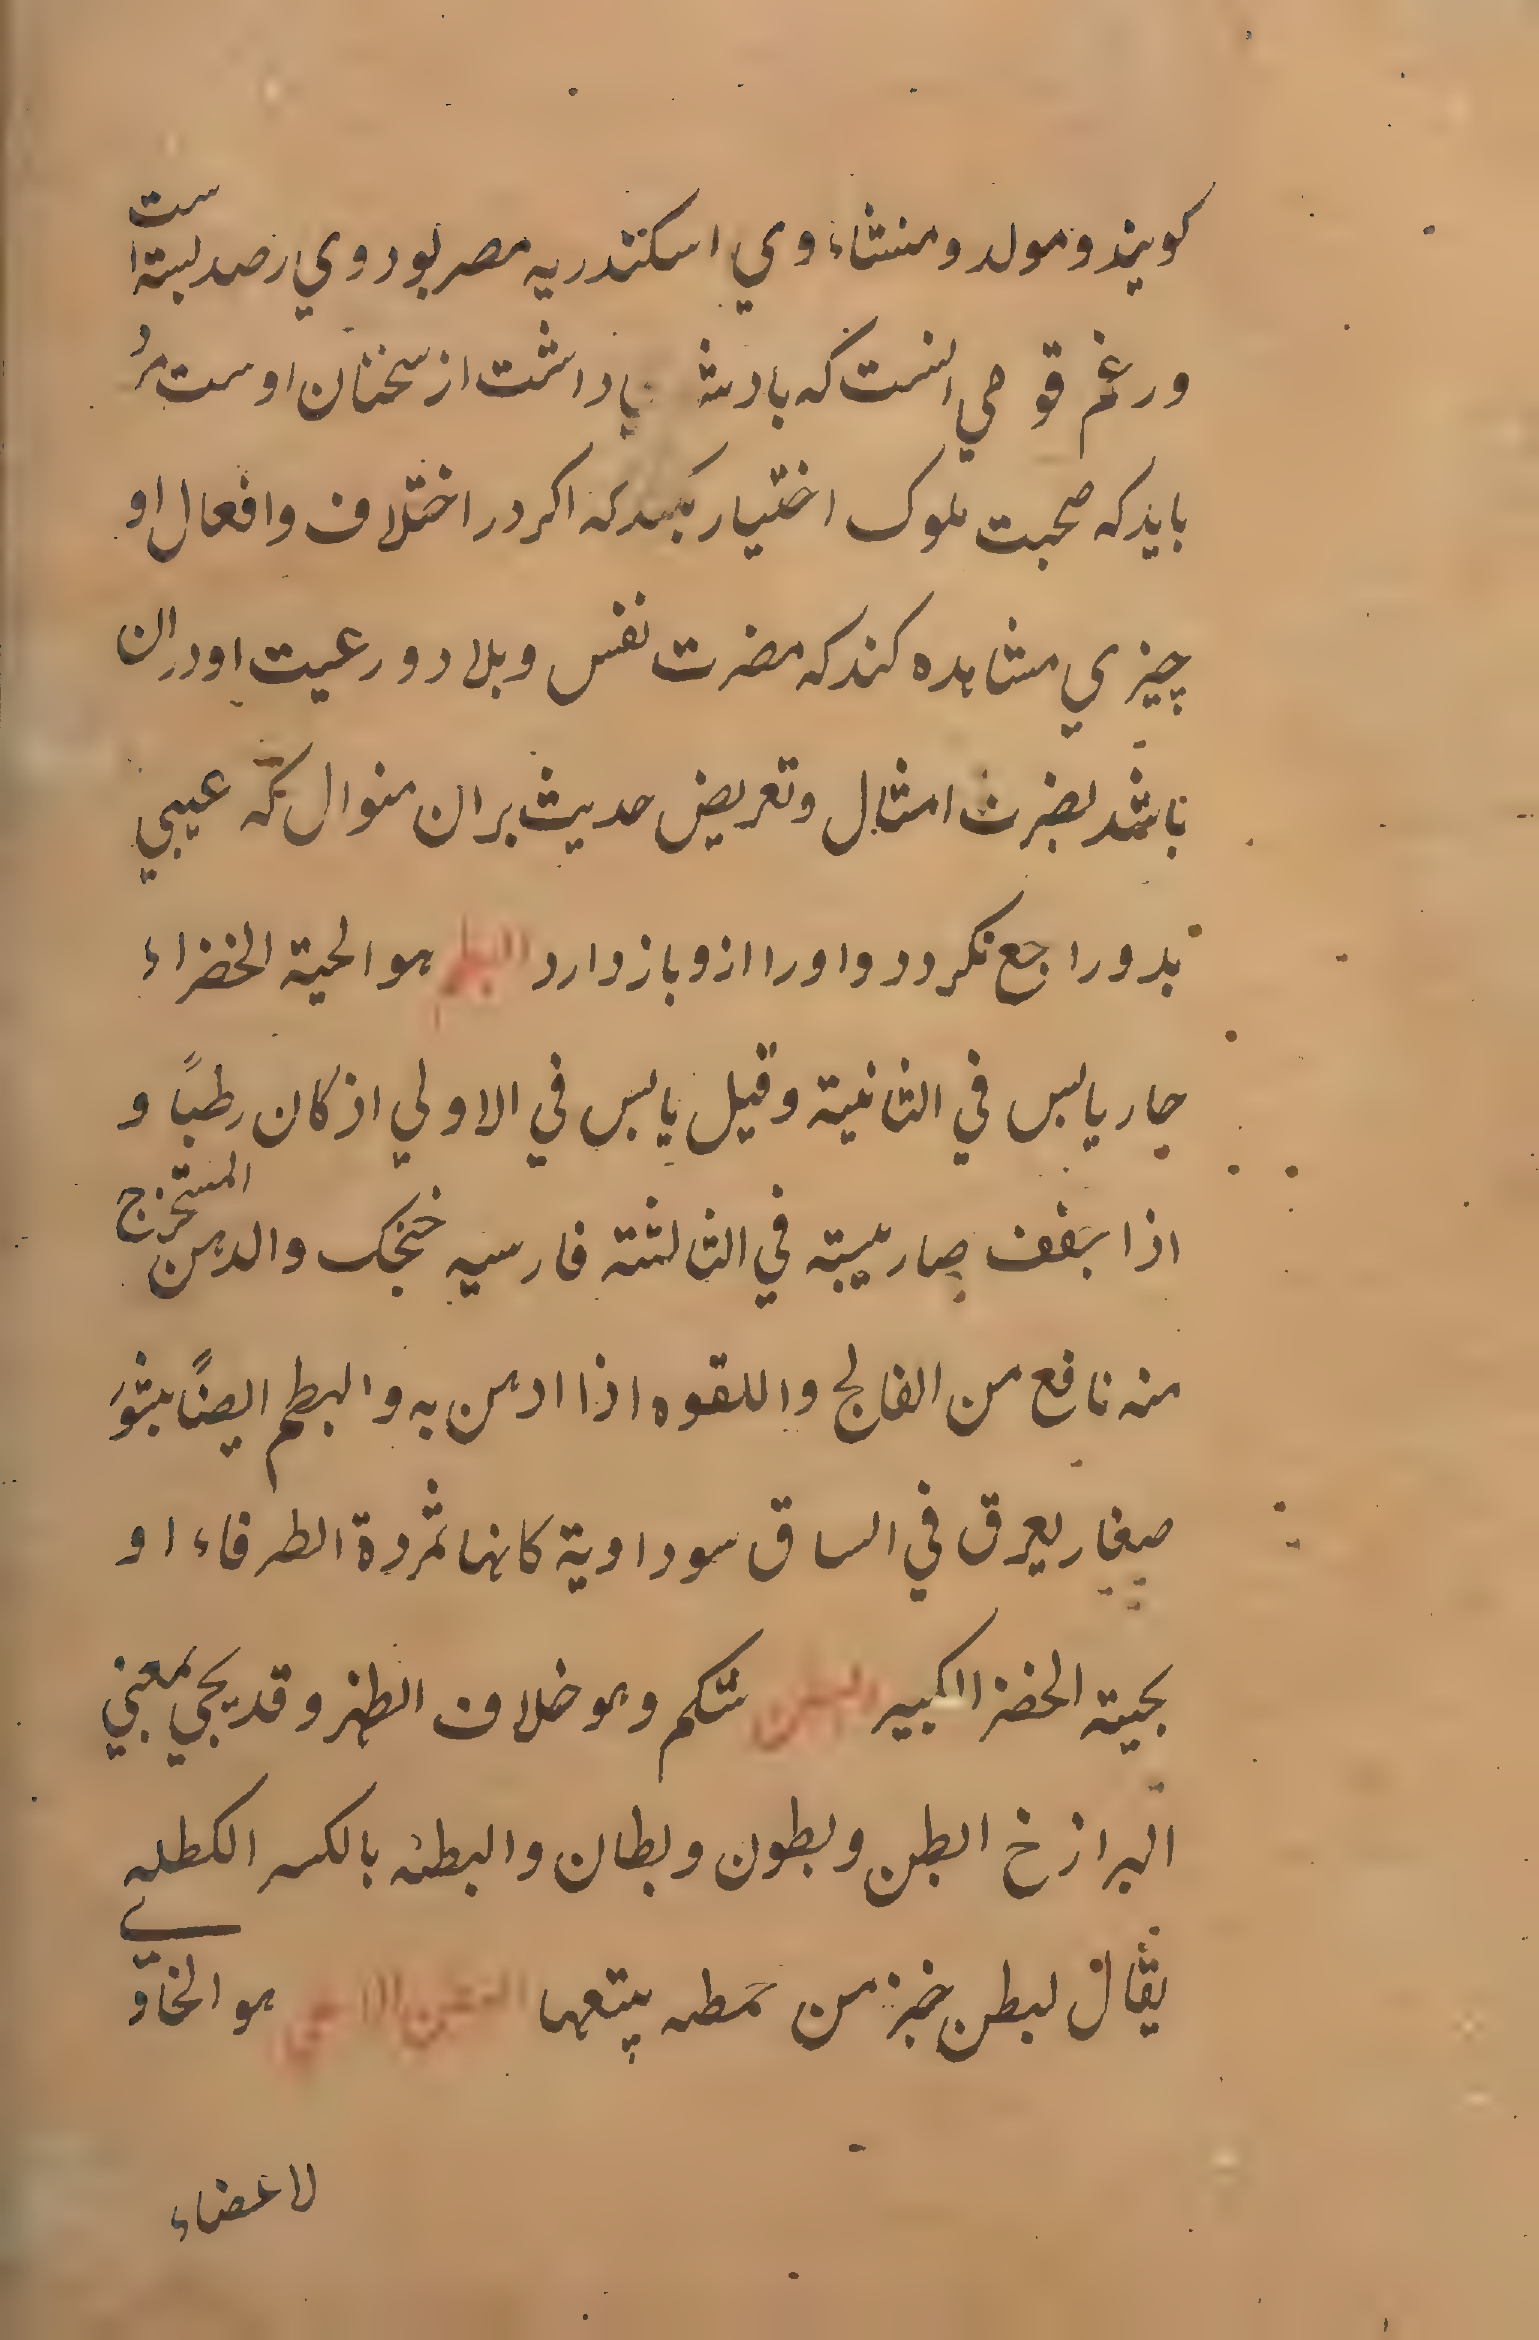 کویند و مولد و منشاء وي اسکندریه مصر بود وي رصد بسته است
و رغم قو حي انست که بادشا یاد داشت از سخنان اوست مرد
باید که صحبت ملوک اختیار بکند که اکر در اختلاف وافعال او
چیزي مشاهده کند که مضرت نفس و بلاد و رعیت او دران
باشد بضرت امثال وتعریض حدیث بران منوال که عیبي
بدو راجع نکردد و اورا ازو باز دارد البطم هو الحبة الخضراء
حار یابس في الثانیة وقیل یابس في الاولي اذ کان رطبًا و
اذا بقف صار یبسته في الثالثة فارسیه خنجک والدهن المستخرج
منه نافع من الفالج واللقوه اذا ادهن به والبطم ایضًا بثور
صغار یعرق في الساق سوداویة کانها ثمردة الطرفاء او
بحبة الخضرا الکبیر البطن شکم وهو خلاف الظهر وقد یجي بمعني
البراز خ ابطن وبطون وبطان والبطنه بالکسر الکظه
یقال لبطن خیز من حمطه یتبعها البطن الا هو الخاوّي
لاعضاء